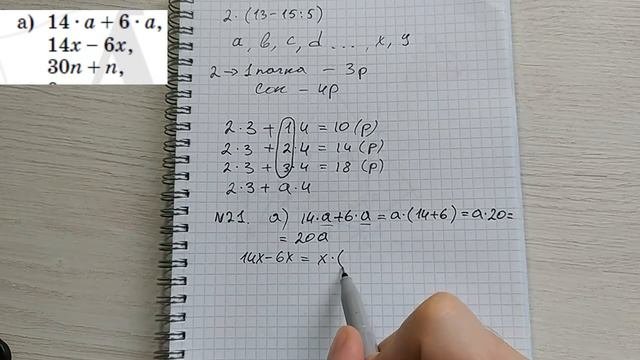 а) 14 · a + 6 · a,
14x − 6x,
30n + n,
2 · (13 − 15 : 5)
a, b, c, d ..., x, y
2 → 1 пачка − 3р
Сок − 4р
2 · 3 + 1 · 4 = 10 (р)
2 · 3 + 2 · 4 = 14 (р)
2 · 3 + 3 · 4 = 18 (р)
2 · 3 + a · 4
№21. а) 14 · a + 6 · a = a · (14 + 6) = a · 20 =
= 20a
14x − 6x = x · (